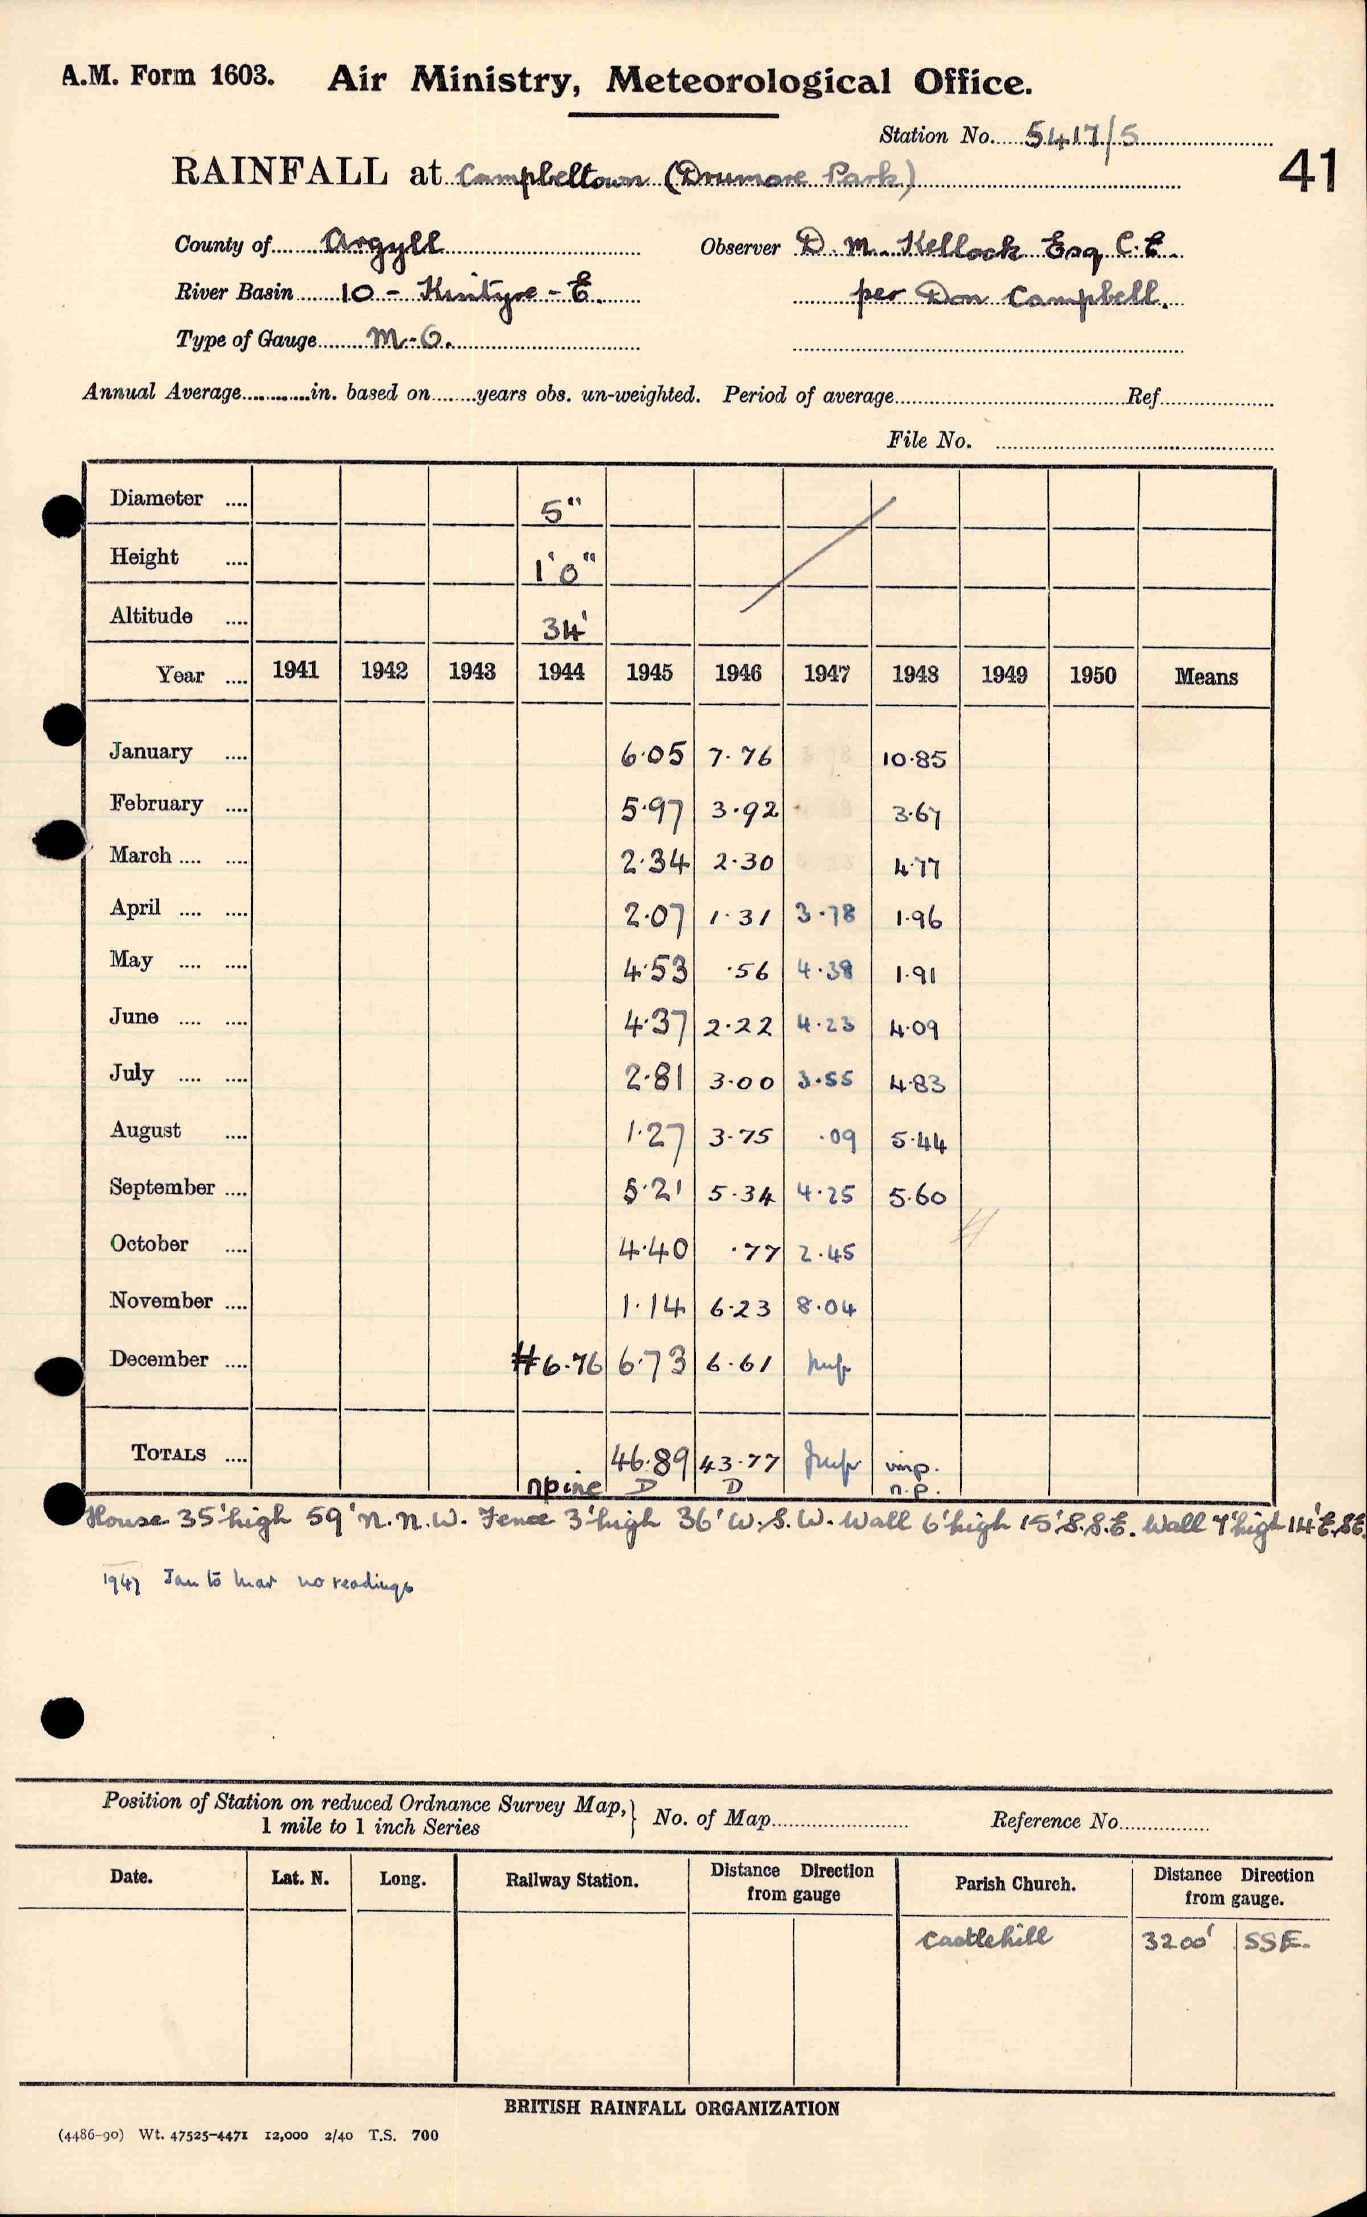 A.M. Form 1603. Air Ministry, Meteorological Office.
Station No. 5417/5
41
RAINFALL at Campbeltown (Drumore Park)
County of Argyll Observer D. M. Kellock Esq C.E.
River Basin 10 - Kintyre - E. per Don Campbell.
Type of Gauge M.O.
Annual Average in. based on years obs. un-weighted. Period of average Ref
File No.
Diameter .... 5"
Height .... 1'0"
Altitude .... 34'
Year .... 1941 1942 1943 1944 1945 1946 1947 1948 1949 1950 Means
January .... 6·05 7·76 10·85
February .... 5·97 3·92 3·67
March .... .... 2·34 2·30 4·77
April .... .... 2·07 1·31 3·78 1·96
May .... .... 4·53 ·56 4·38 1·91
June .... .... 4·37 2·22 4·23 4·09
July .... .... 2·81 3·00 3·55 4·83
August .... 1·27 3·75 ·09 5·44
September .... 5·21 5·34 4·25 5·60
October .... 4·40 ·77 2·45
November .... 1·14 6·23 8·04
December .... #6·76 6·73 6·61 Imp
TOTALS .... 46·89 43·77 Imp imp.
npine D D n.p.
House 35' high 59' N.N.W. Fence 3' high 36' W.S.W. Wall 6' high 15' S.S.E. Wall 7' high 14' E.SE.
1947 Jan to Mar no readings
Position of Station on reduced Ordnance Survey Map, } No. of Map Reference No.
1 mile to 1 inch Series
Date. Lat. N. Long. Railway Station. Distance Direction from gauge Parish Church. Distance Direction from gauge.
Castlehill 3200' SSE.
BRITISH RAINFALL ORGANIZATION
(4486-90) Wt. 47525-4471 12,000 2/40 T.S. 700